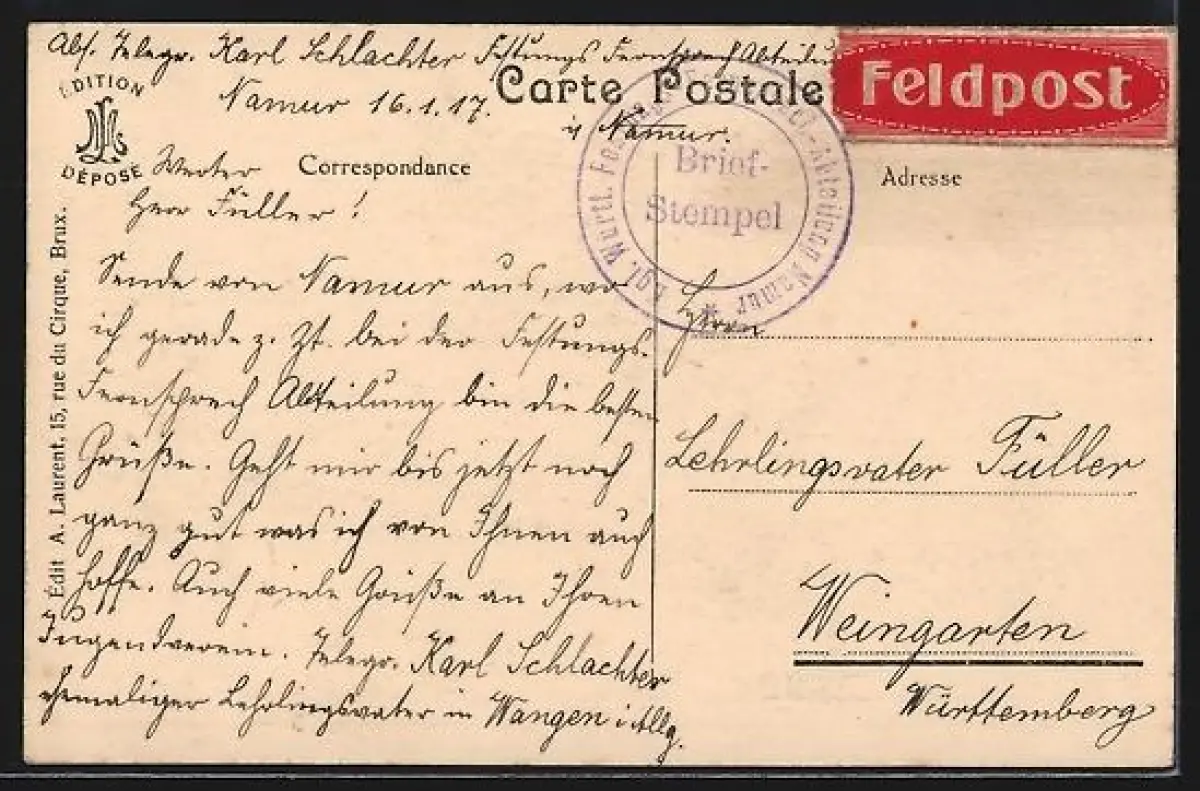 Abs. Telegr. Karl Schlachter Festungs Fernsprech Abteilung
Carte Postale
Feldpost
Namur 16.1.17.
in Namur.
EDITION
DÉPOSÉ
Correspondance
Adresse
Werter
Herr Füller!
Kgl. Württ. Fernsprech-Abteilung Namur *
Brief-
Stempel
Sende von Namur aus, wo
ich gerade z. Zt. bei der Festungs-
Fernsprech Abteilung bin die besten
Grüße. Geht mir bis jetzt noch
ganz gut was ich von Ihnen auch
hoffe. Auch viele Grüße an Ihren
Jugendverein. Telegr. Karl Schlachter
ehemaliger Lehrlingsvater in Wangen i. Allg.
Herrn
Lehrlingsvater Füller
Weingarten
Württemberg
Édit A. Laurent, 15, rue du Cirque, Brux.